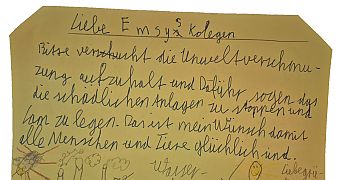 Liebe Emsys Kolegen
Bitte versucht die Umweltverschmu-
zung aufzuhalt und Daführ sogen das
die schädlichen Anlagen zu stoppen und
lam zu legen. Das ist mein Wunsch damit
alle Menschen und Tiere glücklich sind.
Liebegrü-